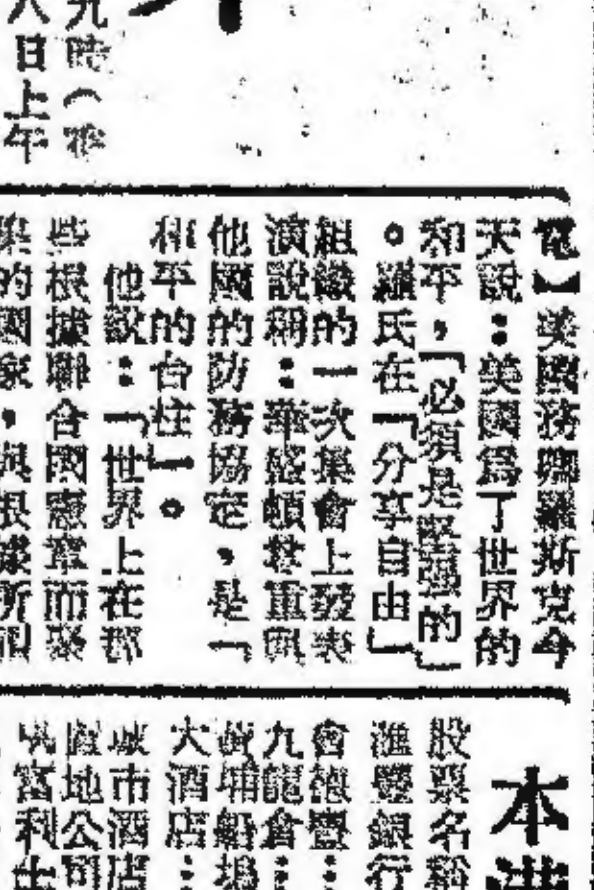 九時（
八日上午
電】美國務卿羅斯克今
天說：美國爲了世界的
和平，「必須是堅強的」
。羅氏在「分享自由」
組織的一次集會上發表
演說稱：華盛頓莊重與
他國的防務協定，是「
和平的台柱」。
他說：「世界上在那
些根據聯合國憲章而聚
的國家，與根據所
本港
股票名稱
滙豐銀行
會德豐：
九龍倉：
黃埔船塢
大酒店：
城市酒店
置地公司
富利